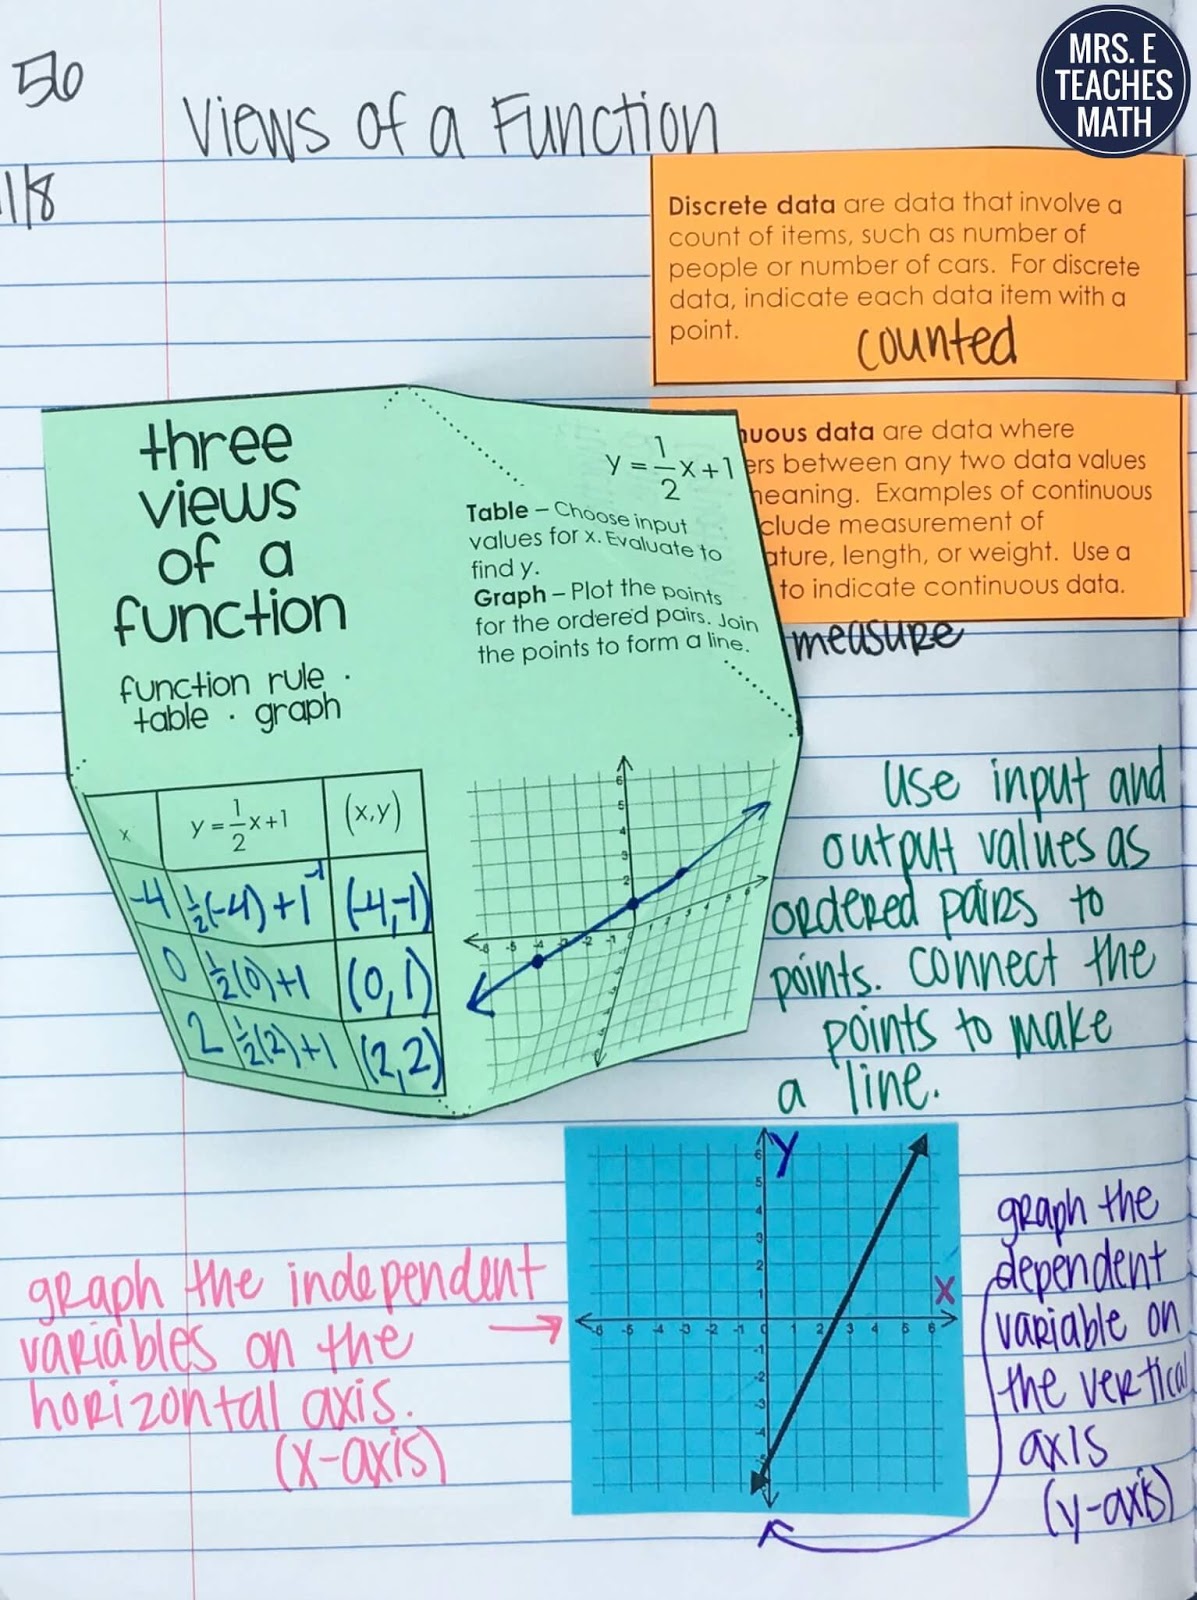 56
Views of a Function
MRS. E
TEACHES
MATH
1/8
Discrete data are data that involve a
count of items, such as number of
people or number of cars. For discrete
data, indicate each data item with a
point.
counted
uous data are data where
ers between any two data values
eaning. Examples of continuous
clude measurement of
ature, length, or weight. Use a
to indicate continuous data.
measure
three
views
of a
function
function rule ·
table · graph
y = 1/2 x + 1
Table – Choose input
values for x. Evaluate to
find y.
Graph – Plot the points
for the ordered pairs. Join
the points to form a line.
x y = 1/2 x + 1 (x,y)
-4 1/2(-4)+1 -1 (-4,-1)
0 1/2(0)+1 (0,1)
2 1/2(2)+1 (2,2)
Use input and
output values as
ordered pairs to
points. Connect the
points to make
a line.
graph the independent
variables on the
horizontal axis.
(x-axis)
Y
6
5
4
3
2
1
X
-6 -5 -4 -3 -2 -1 0 1 2 3 4 5 6
-1
-2
-3
graph the
dependent
variable on
the vertical
axis
(y-axis)